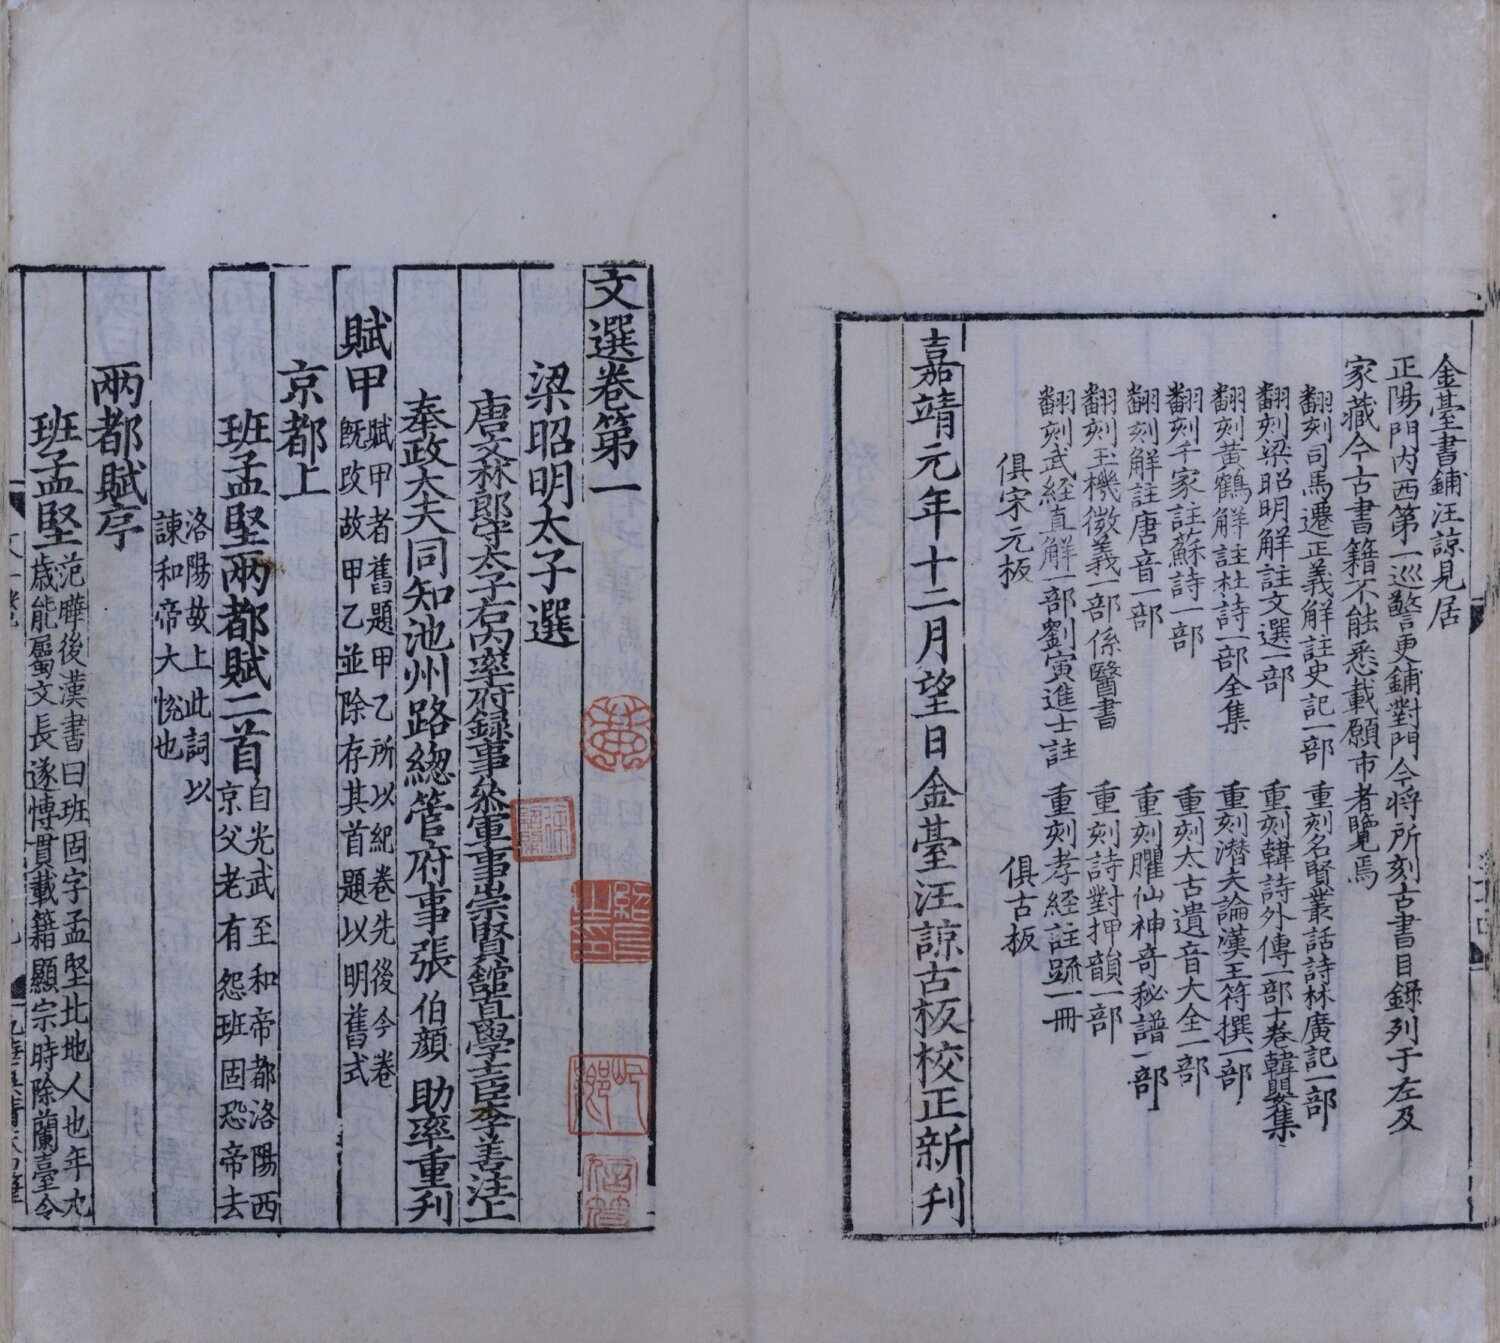 金臺書鋪汪諒見居
正陽門内西第一巡警更鋪對門今將所刻古書目錄列于左及
家藏今古書籍不能悉載願市者覽焉
翻刻司馬遷正義解註史記一部 重刻名賢叢話詩林廣記一部
翻刻梁昭明解註文選一部 重刻韓詩外傳一部十卷韓嬰集
翻刻黃鶴解註杜詩一部全集 重刻潛夫論漢王符撰一部
翻刻千家註蘇詩一部 重刻太古遺音大全一部
翻刻解註唐音一部 重刻臞仙神奇秘譜一部
翻刻玉機微義一部係醫書 重刻詩對押韻一部
翻刻武經直解一部劉寅進士註 重刻孝經註疏一冊
俱宋元板 俱古板
嘉靖元年十二月望日金臺汪諒古板校正新刊
文選卷第一
梁昭明太子選
唐文林郎守太子右内率府録事叅軍事崇賢館直學士臣李善注上
奉政大夫同知池州路緫管府事張伯顔 助率重刋
賦甲 賦甲者舊題甲乙所以紀卷先後今卷
既改故甲乙並除存其首題以明舊式
京都上
班孟堅兩都賦二首 自光武至和帝都洛陽西
京父老有怨班固恐帝去
洛陽故上此詞以
諫和帝大恱也
兩都賦序
班孟堅 范曄後漢書曰班固字孟堅北地人也年九
歲能屬文長遂博貫載籍顯宗時除蘭臺令